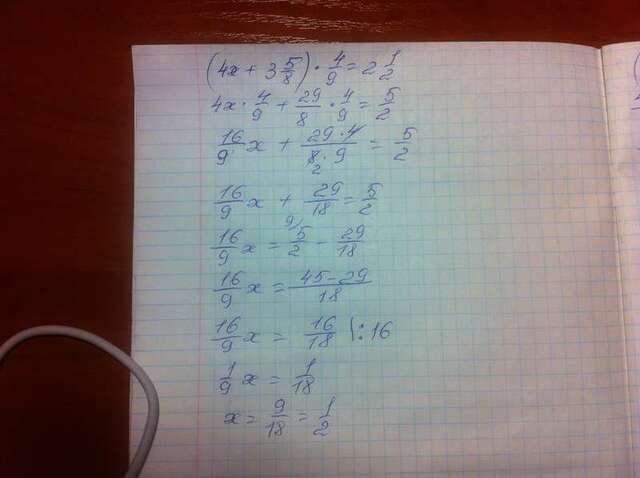 (4x + 3 5/8) · 4/9 = 2 1/2
4x · 4/9 + 29/8 · 4/9 = 5/2
16/9 x + 29 · 4/8 · 9 = 5/2
2
16/9 x + 29/18 = 5/2
16/9 x = 9/ 5/2 - 29/18
16/9 x = 45-29/18
16/9 x = 16/18 |: 16
1/9 x = 1/18
x = 9/18 = 1/2